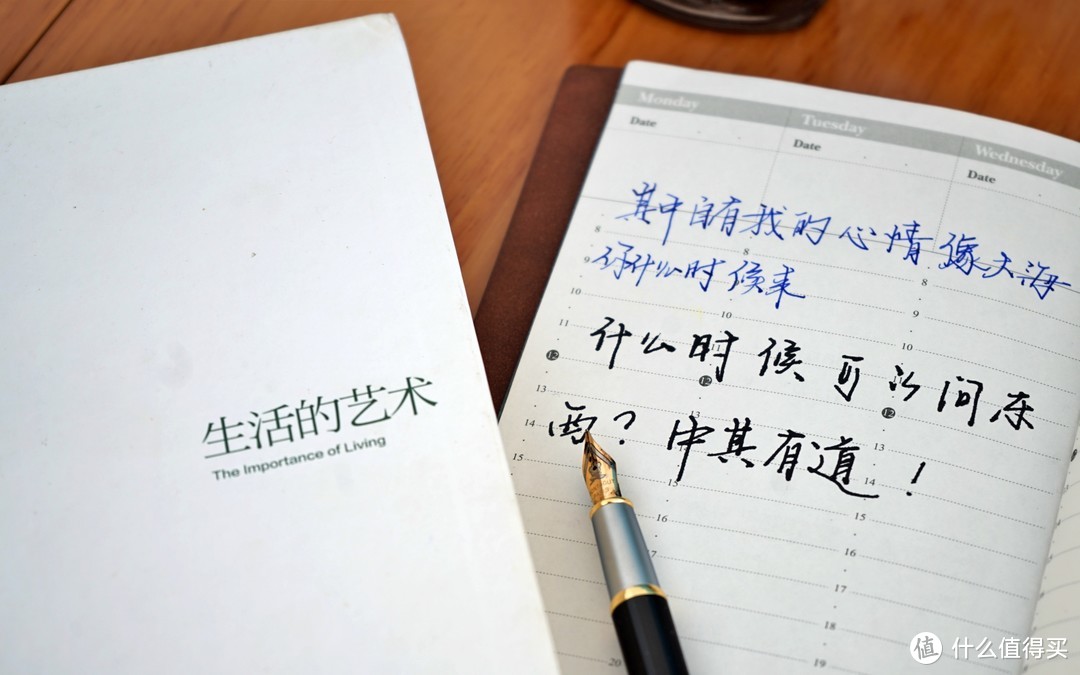 生活的艺术
The Importance of Living
Monday Tuesday Wednesday
Date Date Date
其中自有我的心情像大海
你什么时候来
什么时候可以问东
西？中其有道！
8 8 8
9 9
10 10 10
11
12 12 12
13 13 13
14 14
15 15
16 16
17 17
18
19
20
值 什么值得买